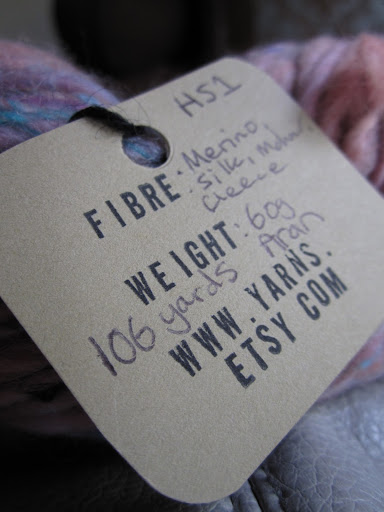 HS1
FIBRE: Merino,
silk, Mohair
fleece
WEIGHT: 60g
106 yards Aran
WWW.YARNS.
ETSY COM